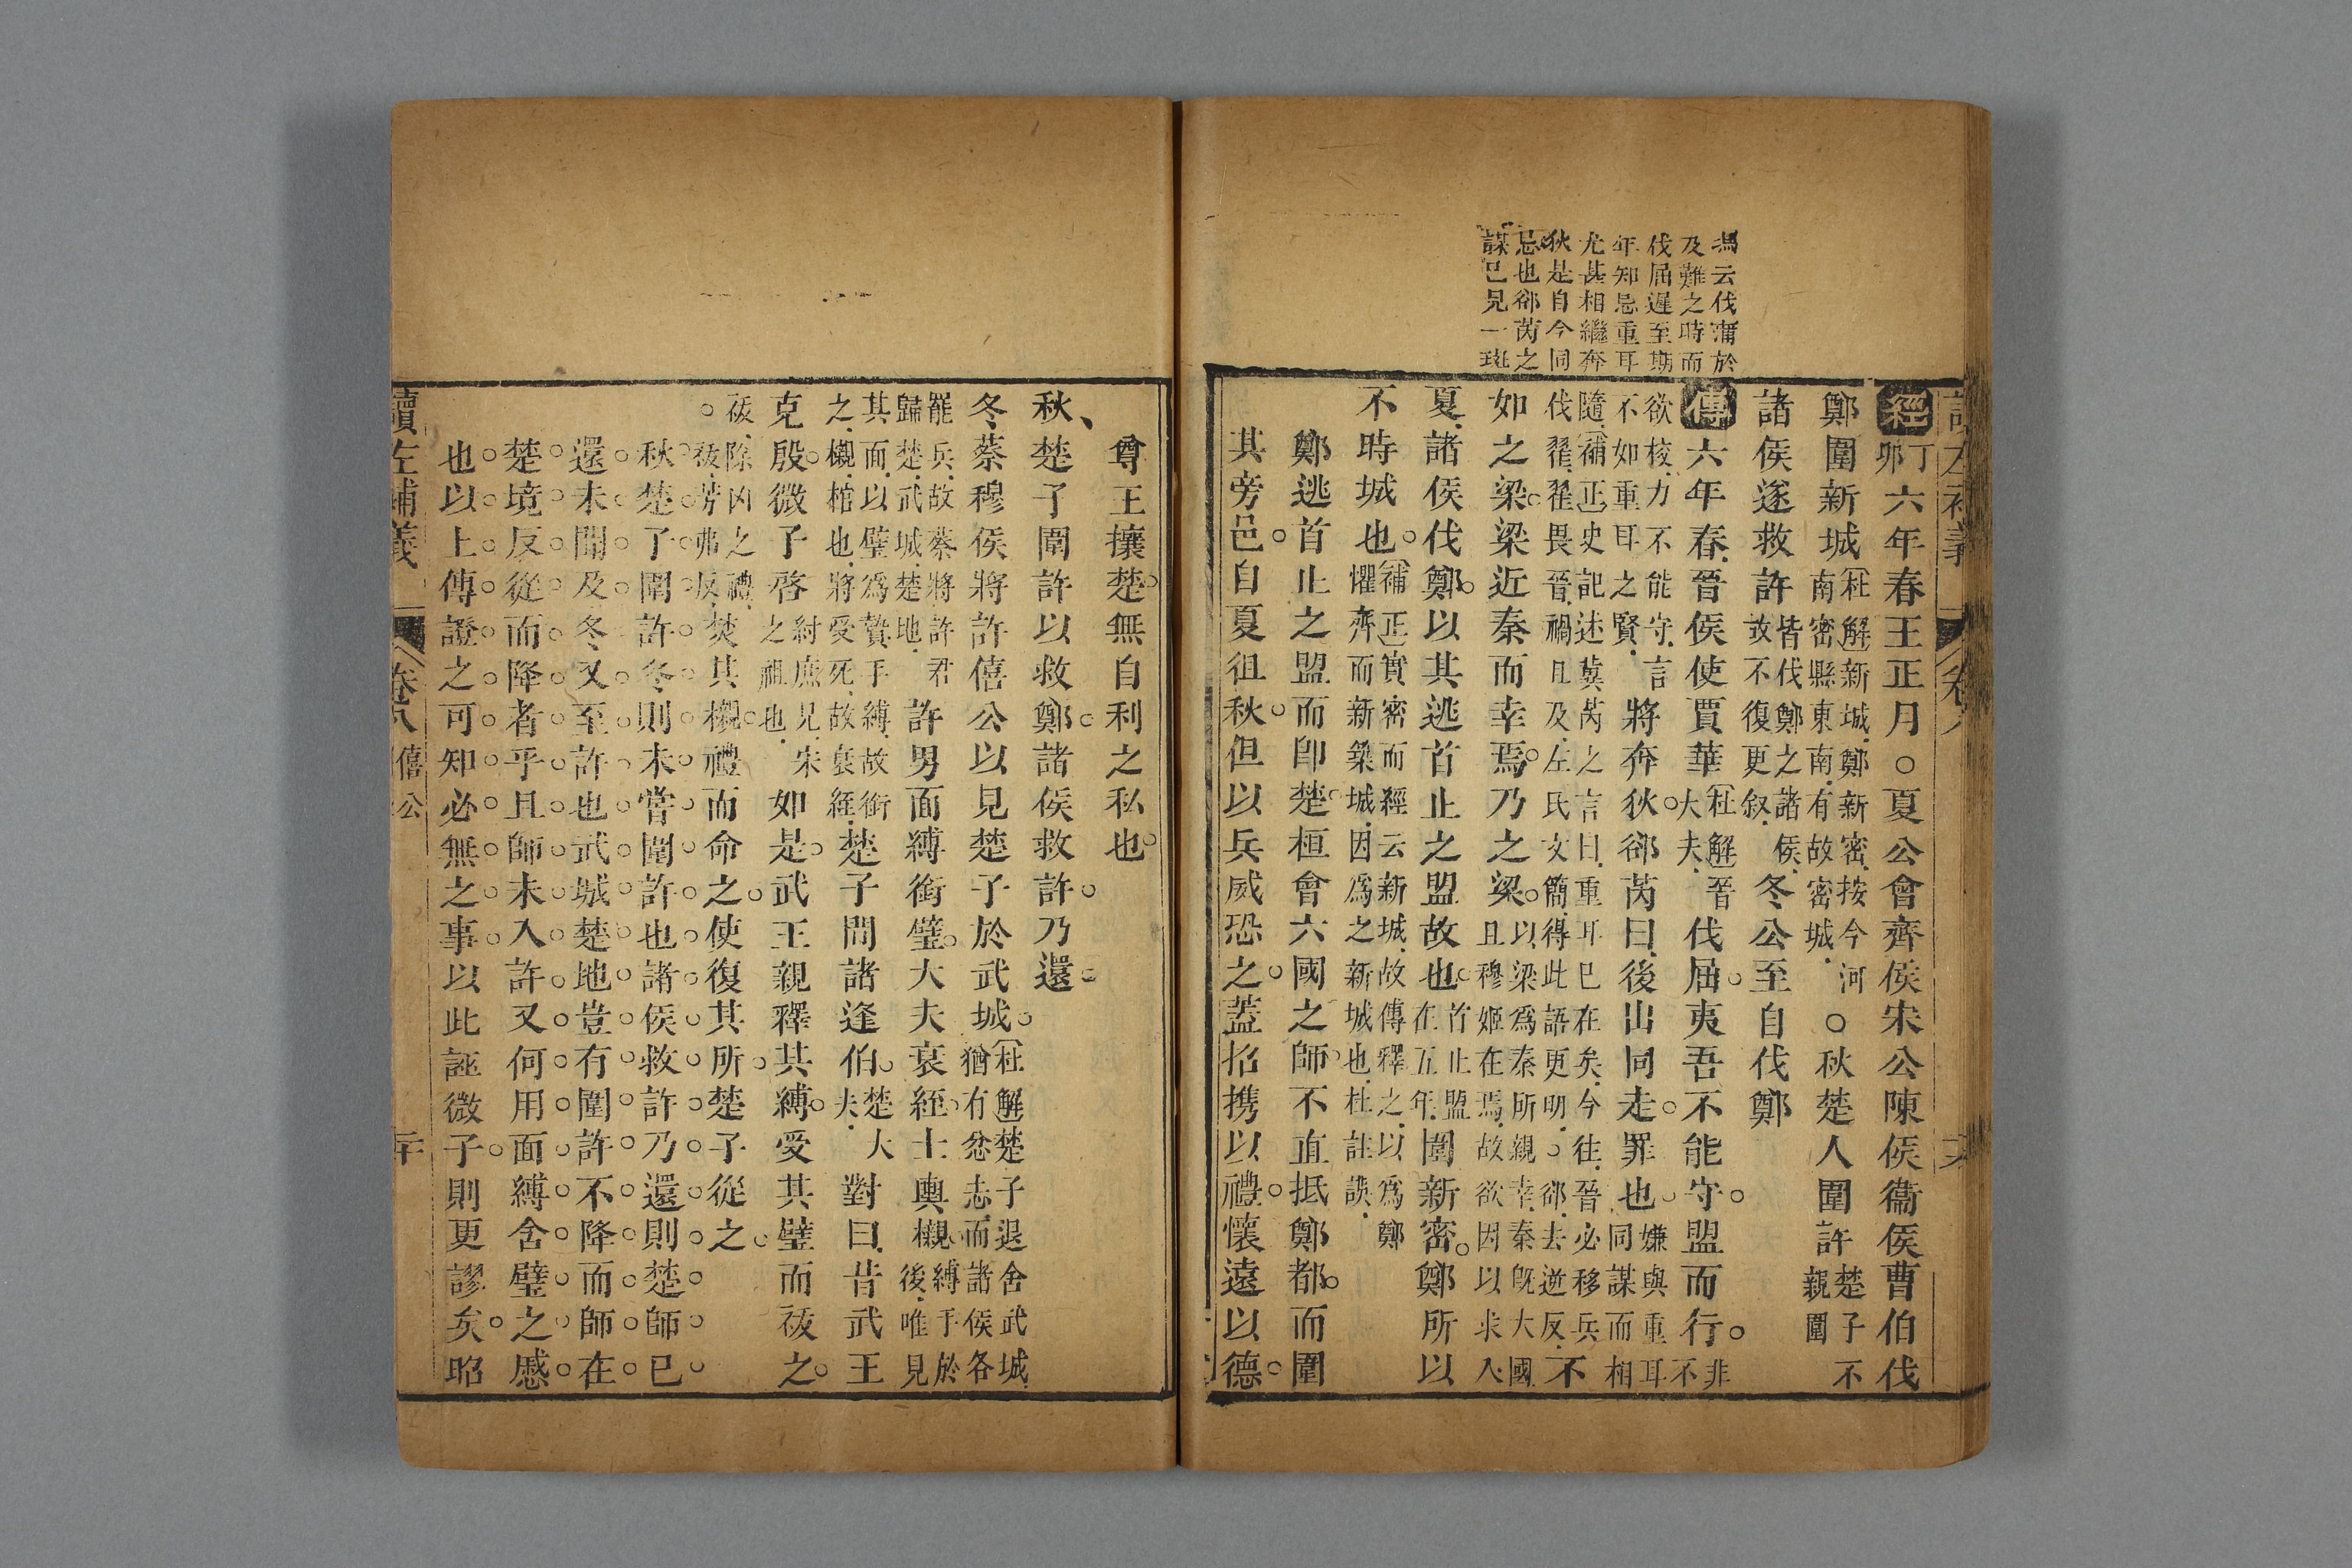 馮云伐蒲於
及難之時而
伐屈遲至期
年知忌重耳
尤甚相繼奔
狄是自今同
忌也郤芮之
謀已見一斑
經丁卯六年春王正月○夏公會齊侯宋公陳侯衞侯曹伯伐
鄭圍新城杜解新城鄭新密按今河南密縣東南有故密城○秋楚人圍許楚子不親圍
諸侯遂救許皆伐鄭之諸侯故不復更叙冬公至自伐鄭
傳六年春晉侯使賈華杜解晉大夫伐屈夷吾不能守盟而行非不
欲校力不能守言不如重耳之賢將奔狄郤芮曰後出同走罪也嫌與重耳同謀而相
隨補正史記述冀芮之言曰重耳已在矣今往晉必移兵伐翟翟畏晉禍且及左氏文簡得此語更明○郤去逆反不
如之梁梁近秦而幸焉乃之梁以梁爲秦所親幸秦旣大國且穆姬在焉故欲因以求入
夏諸侯伐鄭以其逃首止之盟故也首止盟在五年圍新密鄭所以
不時城也補正實密而經云新城故傳釋之以爲鄭懼齊而新築城因爲之新城也杜註誤
鄭逃首止之盟而卽楚桓會六國之師不直抵鄭都而圍
其旁邑自夏徂秋但以兵威恐之蓋招携以禮懷遠以德
尊王攘楚無自利之私也
秋楚子圍許以救鄭諸侯救許乃還
冬蔡穆侯將許僖公以見楚子於武城杜解楚子退舍武城猶有忿志而諸侯各
罷兵故蔡將許君歸楚武城楚地許男面縛銜璧大夫衰絰士輿櫬縛手於後唯見
其面以璧爲贄手縛故銜之櫬棺也將受死故衰絰楚子問諸逢伯楚大夫對曰昔武王
克殷微子啓紂庶兄宋之祖也如是武王親釋其縛受其璧而祓之
祓除凶之禮○祓芳弗反焚其櫬禮而命之使復其所楚子從之
秋楚子圍許冬則未嘗圍許也諸侯救許乃還則楚師已
還未聞及冬又至許也武城楚地豈有圍許不降而師在
楚境反從而降者乎且師未入許又何用面縛舍璧之慼
也以上傳證之可知必無之事以此誣微子則更謬矣昭
讀左補義 卷八 僖公